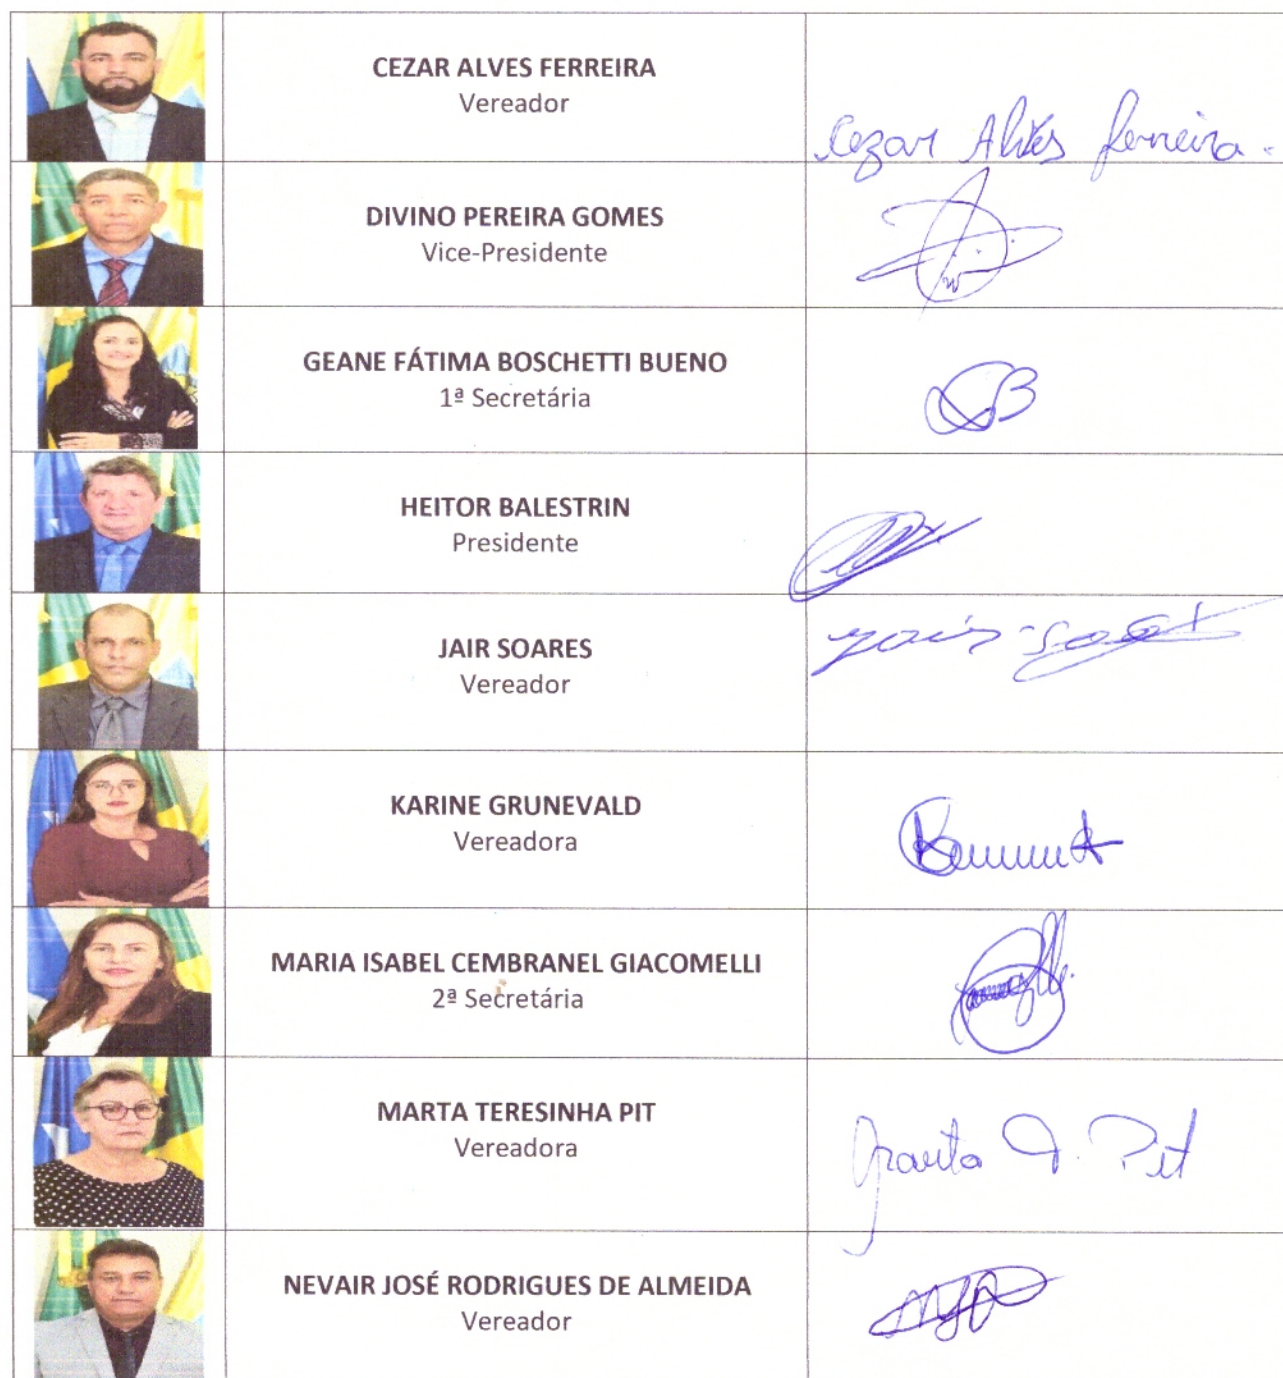 CEZAR ALVES FERREIRA
Vereador
Cezar Alves Ferreira.
DIVINO PEREIRA GOMES
Vice-Presidente
GEANE FÁTIMA BOSCHETTI BUENO
1ª Secretária
HEITOR BALESTRIN
Presidente
JAIR SOARES
Vereador
KARINE GRUNEVALD
Vereadora
MARIA ISABEL CEMBRANEL GIACOMELLI
2ª Secretária
MARTA TERESINHA PIT
Vereadora
Marta T. Pit
NEVAIR JOSÉ RODRIGUES DE ALMEIDA
Vereador